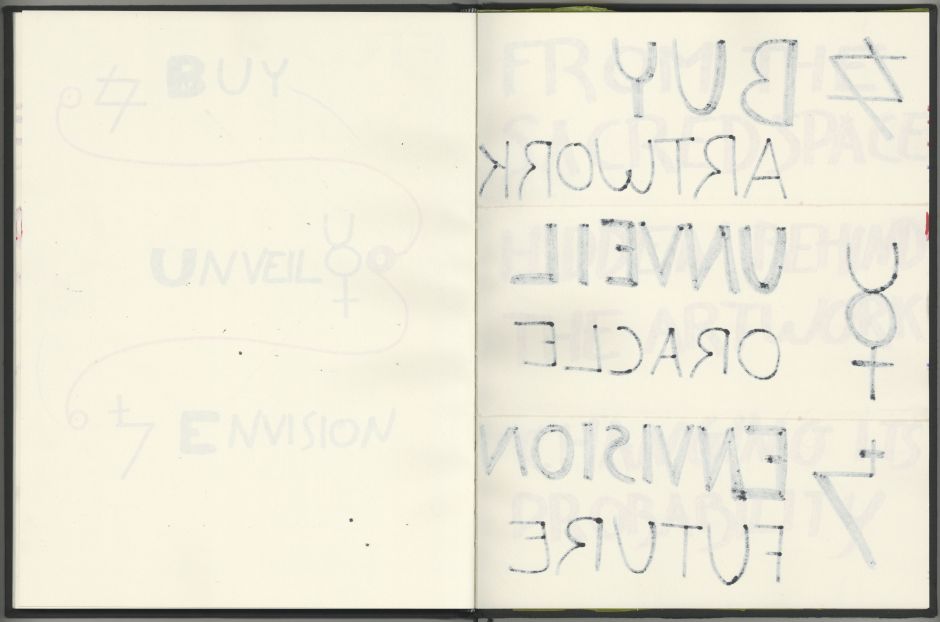 BUY
UNVEIL
ENVISION
BUY
ARTWORK
UNVEIL
ORACLE
ENVISION
FUTURE
FROM THE
SACRED SPACE
HIDDEN BEHIND
THE ARTWORK
PROBABILITY